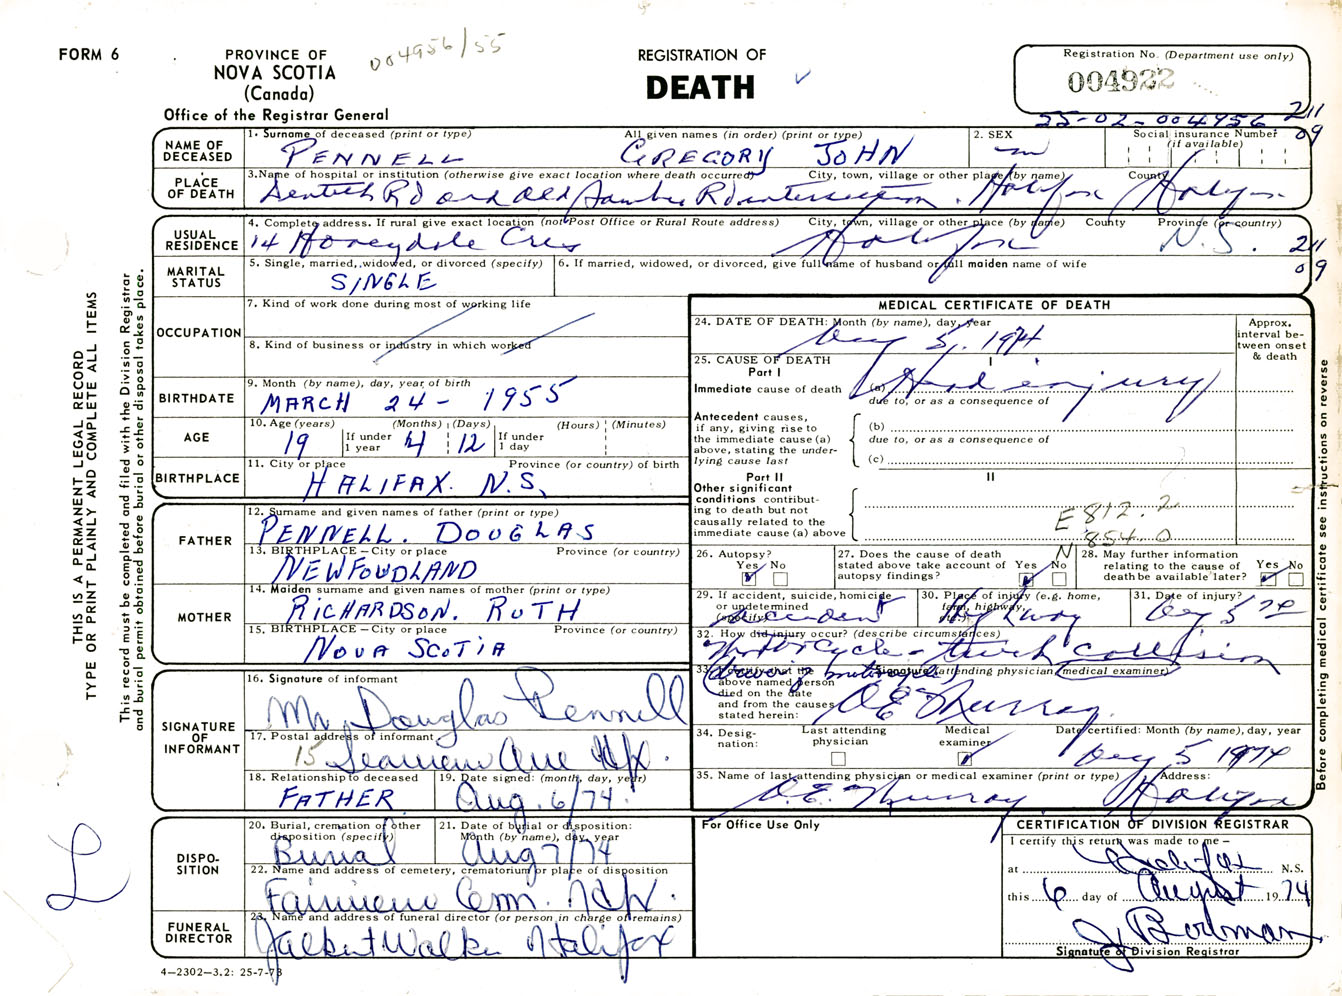 FORM 6
PROVINCE OF
NOVA SCOTIA
(Canada)
Office of the Registrar General
004956/55
REGISTRATION OF
DEATH
Registration No. (Department use only)
004922
55-02-004956
211
09
NAME OF DECEASED
1. Surname of deceased (print or type) All given names (in order) (print or type)
PENNELL GREGORY JOHN
2. SEX
m
Social insurance Number
(if available)
PLACE OF DEATH
3. Name of hospital or institution (otherwise give exact location where death occurred) City, town, village or other place (by name) County
Rd and Old Sambro Rd intersection. Halifax Halifax
USUAL RESIDENCE
4. Complete address. If rural give exact location (not Post Office or Rural Route address) City, town, village or other place (by name) County Province (or country)
14 Honeydale Cres Halifax N.S.
211
09
MARITAL STATUS
5. Single, married, widowed, or divorced (specify)
SINGLE
6. If married, widowed, or divorced, give full name of husband or full maiden name of wife
OCCUPATION
7. Kind of work done during most of working life
8. Kind of business or industry in which worked
BIRTHDATE
9. Month (by name), day, year of birth
MARCH 24 - 1955
AGE
10. Age (years) (Months) (Days) (Hours) (Minutes)
19 If under 1 year 4 12 If under 1 day
BIRTHPLACE
11. City or place Province (or country) of birth
HALIFAX. N.S.
FATHER
12. Surname and given names of father (print or type)
PENNELL. DOUGLAS
13. BIRTHPLACE - City or place Province (or country)
NEWFOUDLAND
MOTHER
14. Maiden surname and given names of mother (print or type)
RICHARDSON. RUTH
15. BIRTHPLACE - City or place Province (or country)
NOVA SCOTIA
SIGNATURE OF INFORMANT
16. Signature of informant
Mr Douglas Pennell
17. Postal address of informant
15 Seaview Ave Hfx.
18. Relationship to deceased
FATHER
19. Date signed: (month, day, year)
Aug. 6/74.
DISPO-
SITION
20. Burial, cremation or other disposition (specify)
Burial
21. Date of burial or disposition: Month (by name), day, year
Aug 7/74
22. Name and address of cemetery, crematorium or place of disposition
Fairview Cem. Hfx.
FUNERAL DIRECTOR
23. Name and address of funeral director (or person in charge of remains)
Walker Halifax
4-2302-3.2: 25-7-73
MEDICAL CERTIFICATE OF DEATH
24. DATE OF DEATH: Month (by name), day, year
Aug 5, 1974
Approx. interval be-
tween onset & death
25. CAUSE OF DEATH
Part I
I
Immediate cause of death (a) Head injury
due to, or as a consequence of
Antecedent causes, if any, giving rise to the immediate cause (a) above, stating the under-
lying cause last
(b)
due to, or as a consequence of
(c)
Part II
II
Other significant conditions contribut-
ing to death but not causally related to the immediate cause (a) above
E 812.2
854.0
N
26. Autopsy?
Yes No
27. Does the cause of death stated above take account of autopsy findings?
Yes No
28. May further information relating to the cause of death be available later?
Yes No
29. If accident, suicide, homicide or undetermined (specify)
accident
30. Place of injury (e.g. home, farm, highway,
Highway
31. Date of injury?
Aug 5 74
32. How did injury occur? (describe circumstances)
Motorcycle - truck collision
(driving motorcycle)
33. I certify that the above named person died on the date and from the causes stated herein:
Signature of attending physician (medical examiner)
O E Murray
34. Desig-
nation:
Last attending physician
Medical examiner
Date certified: Month (by name), day, year
Aug 5 1974
35. Name of last attending physician or medical examiner (print or type) Address:
O.E. Murray Halifax
For Office Use Only
CERTIFICATION OF DIVISION REGISTRAR
I certify this return was made to me -
at Halifax N.S.
this 6 day of August 1974
J Bowman
Signature of Division Registrar
THIS IS A PERMANENT LEGAL RECORD
TYPE OR PRINT PLAINLY AND COMPLETE ALL ITEMS
This record must be completed and filed with the Division Registrar
and burial permit obtained before burial or other disposal takes place.
Before completing medical certificate see instructions on reverse
L